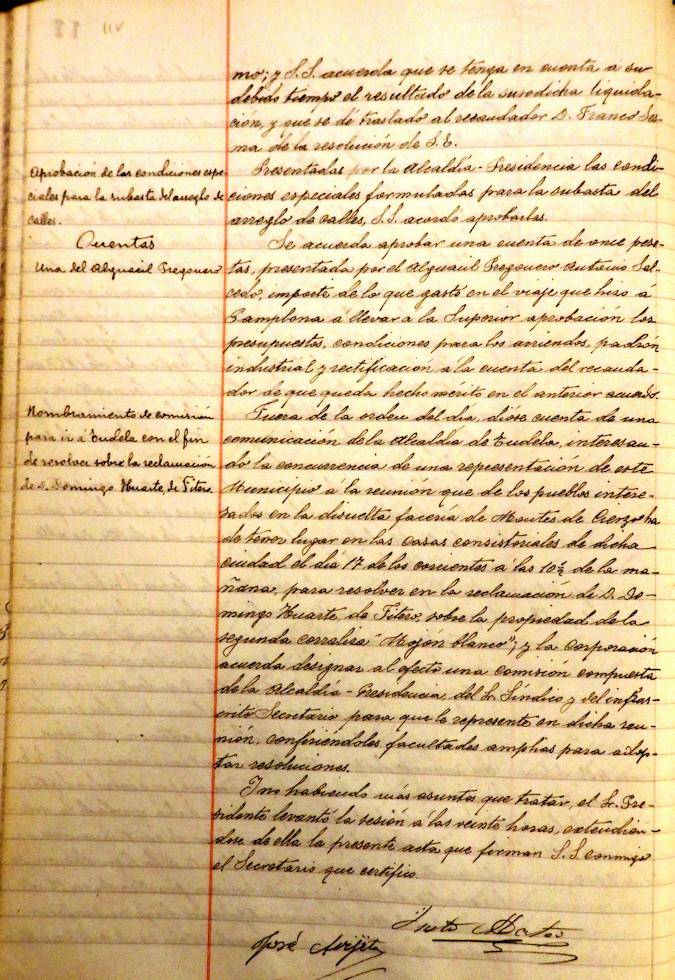 mo; y S.S. acuerda que se tenga en cuenta á su
debido tiempo el resultado de la susodicha liquida-
cion, y que se dé traslado al recaudador D. Franco Les-
ma de la resolución de S.E.
Aprobación de las condiciones espe-
ciales para la subasta del arreglo de
calles.
Presentadas por la Alcaldía-Presidencia las condi-
ciones especiales formuladas para la subasta del
arreglo de calles, S.S. acordó aprobarlas.
Cuentas
Una del Alguacil Pregonero
Se acuerda aprobar una cuenta de once pese-
tas, presentada por el Alguacil Pregonero Antonio Sal-
cedo, importe de lo que gastó en el viaje que hizo á
Pamplona á llevar á la Superior aprobación los
presupuestos, condiciones para los arriendos, padrón
industrial y rectificación á la cuenta del recauda-
dor de que queda hecho mérito en el anterior acuerdo.
Nombramiento de comisión
para ir á Tudela con el fin
de resolver sobre la reclamación
de D. Domingo Huarte, de Fitero.
Fuera de la orden del dia, dióse cuenta de una
comunicación de la Alcaldía de Tudela, interesan-
do la concurrencia de una representación de este
Municipio á la reunión que de los pueblos intere-
sados en la disuelta facería de Montes de Cierzo ha
de tener lugar en las casas consistoriales de dicha
ciudad el día 17 de los corrientes á las 10½ de la ma-
ñana, para resolver en la reclamación de D. Do-
mingo Huarte, de Fitero, sobre la propiedad de la
segunda corraliza "Mojón blanco"; y la corporación
acuerda designar al efecto una comisión compuesta
de la Alcaldía-Presidencia del Sr. Síndico y del infras-
crito Secretario para que le represente en dicha reu-
nión, confiriéndoles facultades amplias para adop-
tar resoluciones.
Y no habiendo más asuntos que tratar, el Sr. Pre-
sidente levantó la sesión á las veinte horas, extendién-
dose de ella la presente acta que firman S.S. conmigo
el Secretario que certifico.
Justo Mateo
José